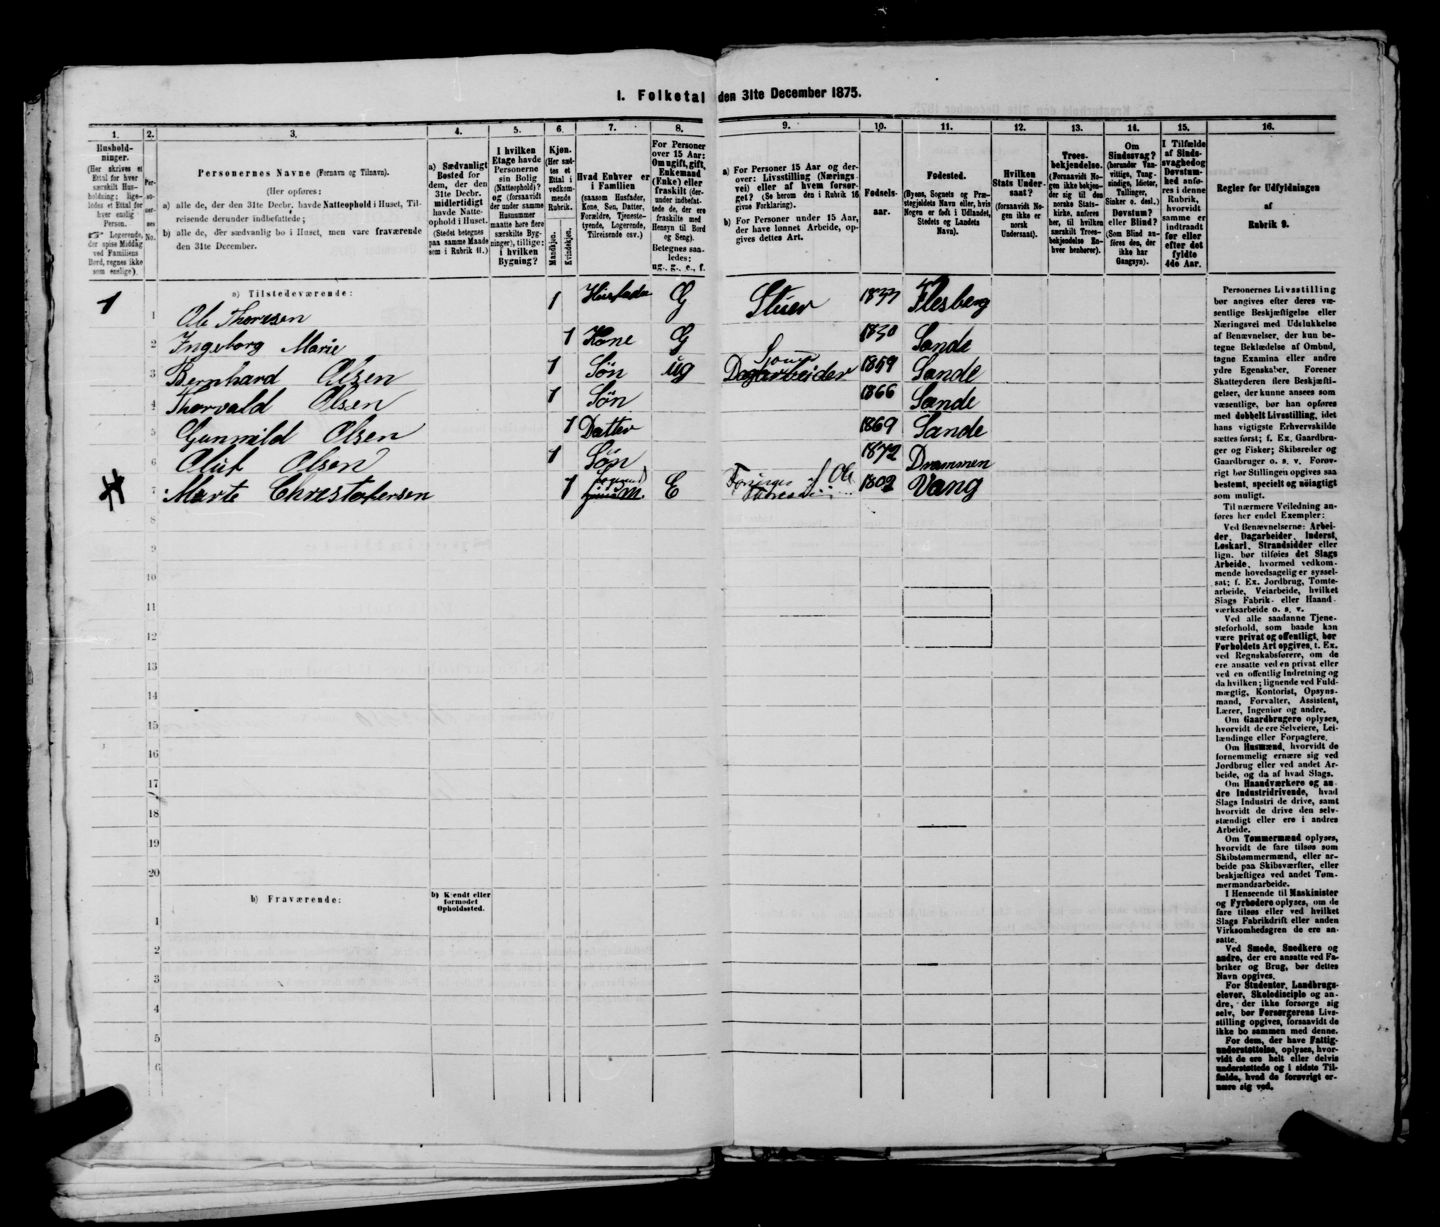 I. Folketal den 31te December 1875.
1. 2. 3. 4. 5. 6. 7. 8. 9. 10. 11. 12. 13. 14. 15. 16.
Hushold-
ninger.
(Her skrives et
Ettal for hver
særskilt Hus-
holdning; lige-
ledes et Ettal for
hver enslig
Person.
☞ Logerende,
der spise Middag
ved Familiens
Bord, regnes ikke
som enslige).
Per-
so-
ner-
nes
No.
Personernes Navne (Fornavn og Tilnavn).
(Her opføres:
a) alle de, der den 31te Decbr. havde Natteophold i Huset, Til-
reisende derunder indbefattede;
b) alle de, der sædvanlig bo i Huset, men vare fraværende
den 31te December.
a) Sædvanligt
Bosted for
dem, der den
31te Decbr.
midlertidigt
havde Natte-
ophold i Huset.
(Stedet betegnes
paa samme Maade
som i Rubrik 11.)
I hvilken
Etage havde
Personerne
sin Bolig
(Natteophold)?
og (forsaavidt
der under samme
Husnummer
maatte høre flere
særskilte Byg-
ninger), tillige:
i hvilken
Bygning?
Kjøn.
(Her sæt-
tes et
Ettal i
vedkom-
mende
Rubrik.
Mandkjøn.
Kvindekjøn.
Hvad Enhver er
i Familien
(saasom Husfader,
Kone, Søn, Datter,
Forældre, Tjeneste-
tyende, Logerende,
Tilreisende osv.)
For Personer
over 15 Aar:
Om ugift, gift,
Enkemand
(Enke) eller
fraskilt (der-
under indbefat-
tede de, der ere
fraskilte med
Hensyn til Bord
og Seng).
Betegnes saa-
ledes:
ug., g., e., f.
a) For Personer 15 Aar og der-
over: Livsstilling (Nærings-
vei) eller af hvem forsør-
get? (Se herom den i Rubrik 16
givne Forklaring).
b) For Personer under 15 Aar,
der have lønnet Arbeide, op-
gives dettes Art.
Fødsels-
aar.
Fødested.
(Byens, Sognets og Præ-
stegjeldets Navn eller, hvis
Nogen er født i Udlandet,
Stedets og Landets
Navn).
Hvilken
Stats Under-
saat?
(forsaavidt No-
gen ikke er
norsk
Undersaat).
Troes-
bekjendelse.
(Forsaavidt No-
gen ikke bekjen-
der sig til den
norske Stats-
kirke, anføres
her, til hvilken
særskilt Troes-
bekjendelse En-
hver henhører).
Om
Sindssvag?
(herunder Van-
vittige, Tung-
sindige, Idioter,
Tullinger,
Sinker o. desl.)
Døvstum?
eller Blind?
(Som Blind an-
føres den, der
ikke har
Gangsyn).
I Tilfælde
af Sinds-
svaghed og
Døvstum-
hed anfø-
res i denne
Rubrik,
hvorvidt
samme er
indtraadt
før eller
efter det
fyldte
4de Aar.
Regler for Udfyldningen
af
Rubrik 9.
a) Tilstedeværende:
1 1 Ole Thoresen 1 Husfader G Stuer 1833 Flesberg
2 Ingeborg Marie 1 Kone G 1830 Sande
3 Bernhard Olsen 1 Søn ug Dagarbeider 1859 Sande
4 Thorvald Olsen 1 Søn 1866 Sande
5 Gunnild Olsen 1 Datter 1869 Sande
6 Oluf Olsen 1 Søn 1872 Drammen
7 Marte Christofersen 1 E 1802 Vang
8
9
10
11
12
13
14
15
16
17
18
19
20
b) Fraværende:
b) Kjendt eller
formodet
Opholdssted.
1
2
3
4
5
6
Personernes Livsstilling
bør angives efter deres væ-
sentlige Beskjæftigelse eller
Næringsvei med Udslukkelse
af Benævnelser, der kun be-
tegne Beklædelse af Ombud,
tagne Examina eller andre
ydre Egenskaber. Forener
Skatteyderen flere Beskjæfti-
gelser, der kunne ansees som
væsentlige, bør han opføres
med dobbelt Livsstilling, idet
hans vigtigste Erhvervskilde
sættes først; f. Ex. Gaardbru-
ger og Fisker; Skibsreder og
Gaardbruger o. s. v. Forøv-
rigt bør Stillingen opgives saa
bestemt, specielt og nøiagtigt
som muligt.
Til nærmere Veiledning an-
føres her endel Exempler:
Ved Benævnelserne: Arbei-
der, Dagarbeider, Inderst,
Løskarl, Strandsidder eller
lign. bør tilføies det Slags
Arbeide, hvormed vedkom-
mende hovedsagelig er syssel-
sat; f. Ex. Jordbrug, Tomte-
arbeide, Veiarbeide, hvilket
Slags Fabrik- eller Haand-
værksarbeide o. s. v.
Ved alle saadanne Tjene-
steforhold, som baade kan
være privat og offentligt, bør
Forholdets Art opgives, t. Ex.
ved Regnskabsførere, om de
ere ansatte ved en privat eller
ved en offentlig Indretning og
da hvilken; lignende ved Fuld-
mægtig, Kontorist, Opsyns-
mand, Forvalter, Assistent,
Lærer, Ingeniør og andre.
Om Gaardbrugere oplyses,
hvorvidt de ere Selveiere, Lei-
lændinge eller Forpagtere.
Om Husmænd, hvorvidt de
fornemmelig ernære sig ved
Jordbrug eller ved andet Ar-
beide, og da af hvad Slags.
Om Haandværkere og an-
dre Industridrivende, hvad
Slags Industri de drive, samt
hvorvidt de drive den selv-
stændigt eller ere i andres
Arbeide.
Om Tømmermænd oplyses,
hvorvidt de fare tilsøs som
Skibstømmermænd, eller ar-
beide paa Skibsværfter, eller
beskjæftiges ved andet Tøm-
mermandsarbeide.
I Henseende til Maskinister
og Fyrbødere oplyses, om de
fare tilsøs eller ved hvilket
Slags Fabrikdrift eller anden
Virksomhedsgren de ere an-
satte.
Ved Smede, Snedkere og
andre, der ere ansatte ved Fa-
briker og Brug, bør dettes
Navn opgives.
For Studenter, Landbrugs-
elever, Skoledisciple og an-
dre, der ikke forsørge sig
selv, bør Forsørgerens Livs-
stilling opgives, forsaavidt de
ikke bo sammen med denne.
For dem, der have Fattig-
understøttelse, oplyses, hvor-
vidt de ere helt eller delvis
understøttede og i sidste Til-
fælde, hvad de forøvrigt er-
nære sig ved.